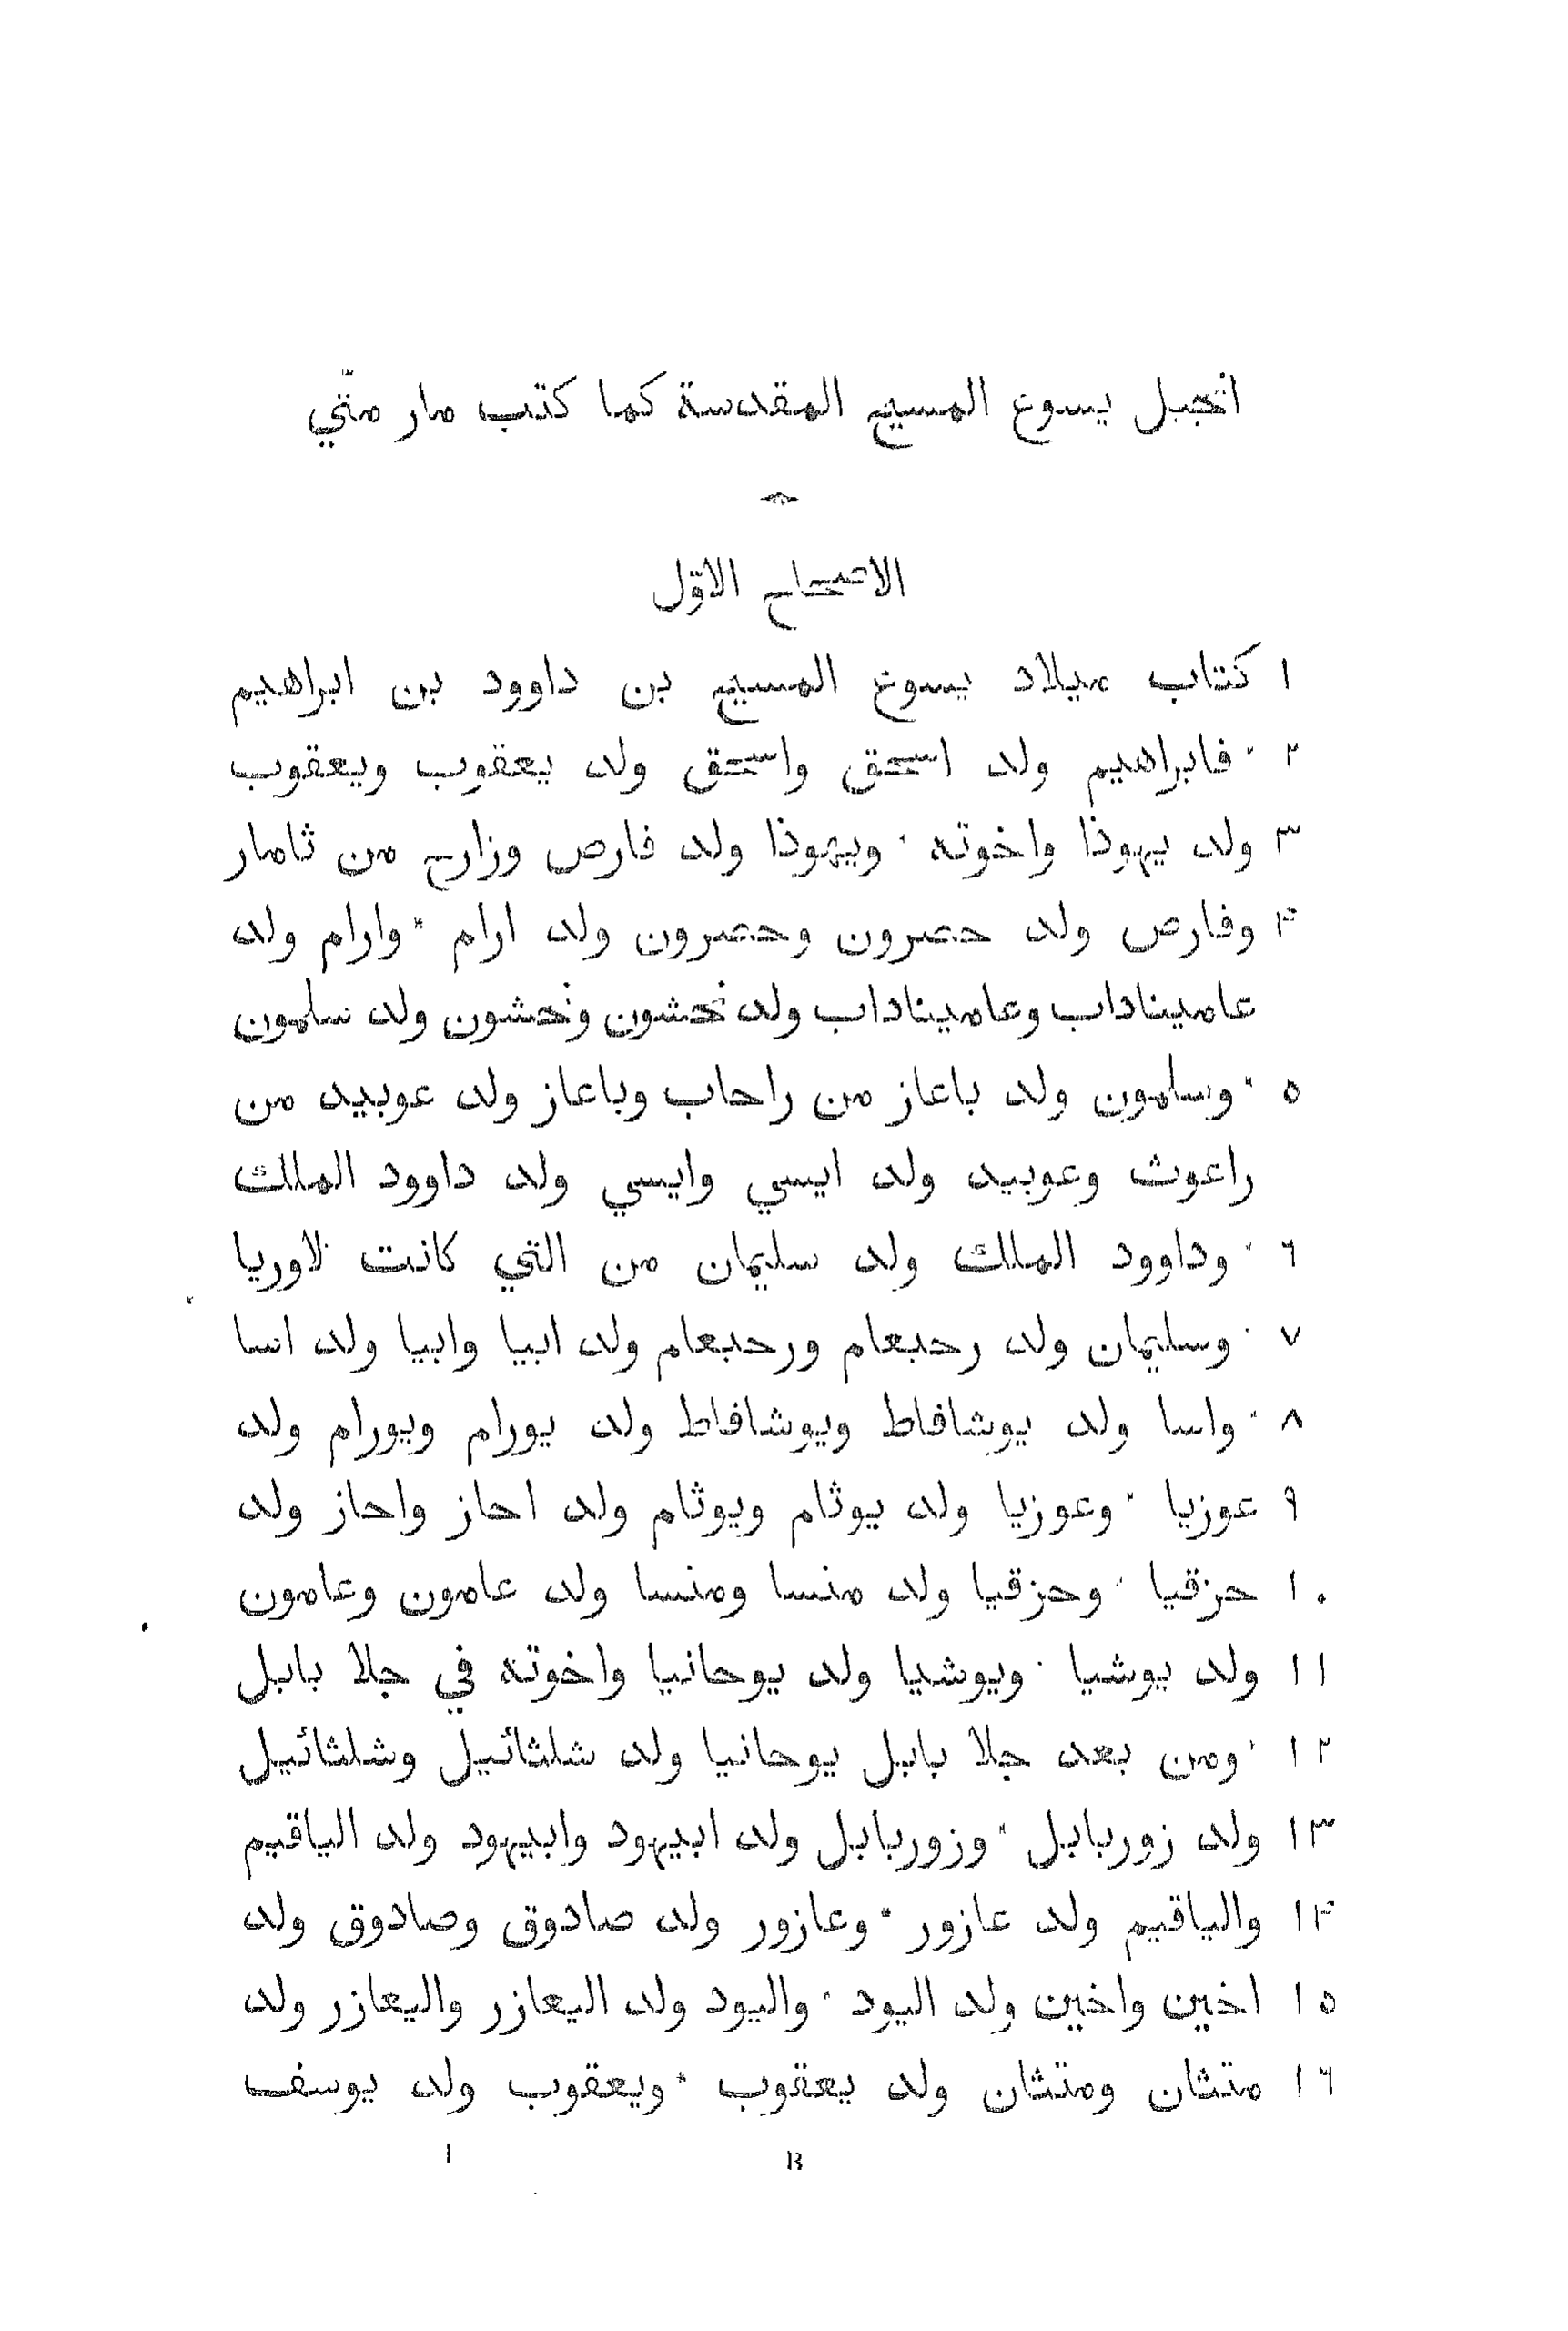 انجيل يسوع المسيح المقدسة كما كتب مار متّي
الاصحاح الاوّل
١ كتاب ميلاد يسوع المسيح بن داوود بن ابراهيم
٢ ٠ فابراهيم ولد اسحق واسحق ولد يعقوب ويعقوب
٣ ولد يهوذا واخوته ٠ ويهوذا ولد فارص وزارح من ثامار
۴ وفارص ولد حصرون وحصرون ولد ارام * وارام ولد
عاميناداب وعاميناداب ولد نحشون ونحشون ولد سلمون
٥ * وسلمون ولد باعاز من راحاب وباعاز ولد عوبيد من
راعوث وعوبيد ولد ايسي وايسي ولد داوود الملك
٦ ٠ وداوود الملك ولد سليمان من التي كانت لاوريا
٧ ٠ وسليمان ولد رحبعام ورحبعام ولد ابيا وابيا ولد اسا
٨ ٠ واسا ولد يوشافاط ويوشافاط ولد يورام ويورام ولد
٩ عوزيا * وعوزيا ولد يوثام ويوثام ولد احاز واحاز ولد
١٠ حزقيا ٠ وحزقيا ولد منسا ومنسا ولد عامون وعامون
١١ ولد يوشيا ٠ ويوشيا ولد يوحانيا واخوته في جلا بابل
١٢ ٠ ومن بعد جلا بابل يوحانيا ولد شلثائيل وشلثائيل
١٣ ولد زوربابل * وزوربابل ولد ابيهود وابيهود ولد الياقيم
١۴ والياقيم ولد عازور * وعازور ولد صادوق وصادوق ولد
١٥ اخين واخين ولد اليود ٠ واليود ولد اليعازر واليعازر ولد
١٦ متثان ومتثان ولد يعقوب * ويعقوب ولد يوسف
B ١